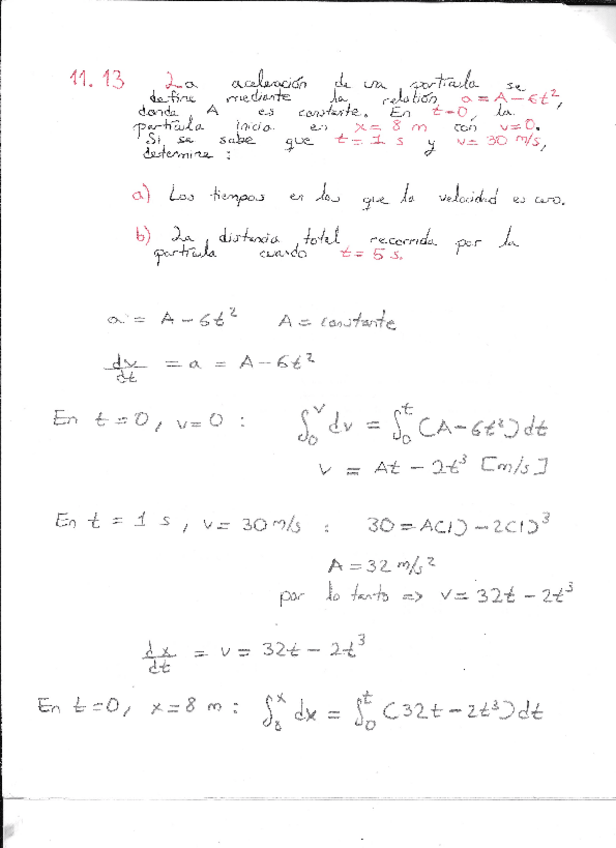 11.13 La aceleración de una partícula se
define mediante la relación a = A - 6t²,
donde A es constante. En t=0, la
partícula inicia en x = 8 m con v=0.
Si se sabe que t = 1 s y v = 30 m/s,
determine :
a) Los tiempos en los que la velocidad es cero.
b) La distancia total recorrida por la
partícula cuando t = 5 s.
a = A - 6t² A = constante
dv/dt = a = A - 6t²
En t = 0, v = 0 : ∫₀ᵛ dv = ∫₀ᵗ (A - 6t²) dt
v = At - 2t³ [m/s]
En t = 1 s, v = 30 m/s : 30 = A(1) - 2(1)³
A = 32 m/s²
por lo tanto => v = 32t - 2t³
dx/dt = v = 32t - 2t³
En t=0, x = 8 m : ∫₈ˣ dx = ∫₀ᵗ (32t - 2t³) dt